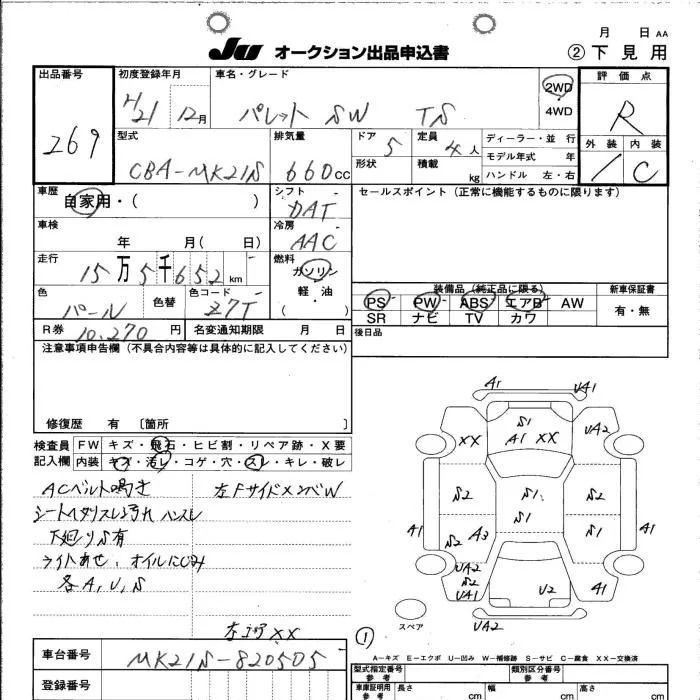 JU オークション出品申込書
月 日 AA
② 下見用
出品番号
269
初度登録年月
H21 12月
車名・グレード
パレット SW TS
2WD
4WD
評価点
R
外装 内装
C
型式
CBA-MK21S
排気量
660 cc
ドア
5
形状
定員
4人
積載
kg
ディーラー・並行
モデル年式 年
ハンドル 左・右
車歴
自家用・( )
シフト
DAT
セールスポイント (正常に機能するものに限ります)
車検
年 月( 日)
冷房
AAC
走行
15万5千652 km
燃料
ガソリン
軽・油
( )
色
パール
色替
色コード
Z7T
装備品 (純正品に限る)
PS PW ABS エアB AW
SR ナビ TV カワ
新車保証書
有・無
R券 10,270 円
名変通知期限 月 日
後日品
注意事項申告欄 (不具合内容等は具体的に記入してください)
修復歴 有 〔箇所 〕
検査員記入欄
FW キズ・飛石・ヒビ割・リペア跡・X要
内装 キズ・汚レ・コゲ・穴・スレ・キレ・破レ
ACベルト鳴き
左Fサイドメンバ W
シートヘタリスレ汚れ ハンスレ
下廻りS有
ライトあせ、オイルにじみ
各A,U,S
左エア XX
A1
UA1
XX
S1
A1 XX
UA2
S2
S1
S2
A1
S2
A3
S1
S1
A1
UA2
S2
UA1
U2
A1
UA2
スペア
①
A-キズ E-エクボ U-凹み W-補修跡 S-サビ C-腐食 XX-交換済
車台番号
MK21S-820505
登録番号
型式指定番号
類別区分番号
車庫証明用参考
長さ cm
幅 cm
高さ cm